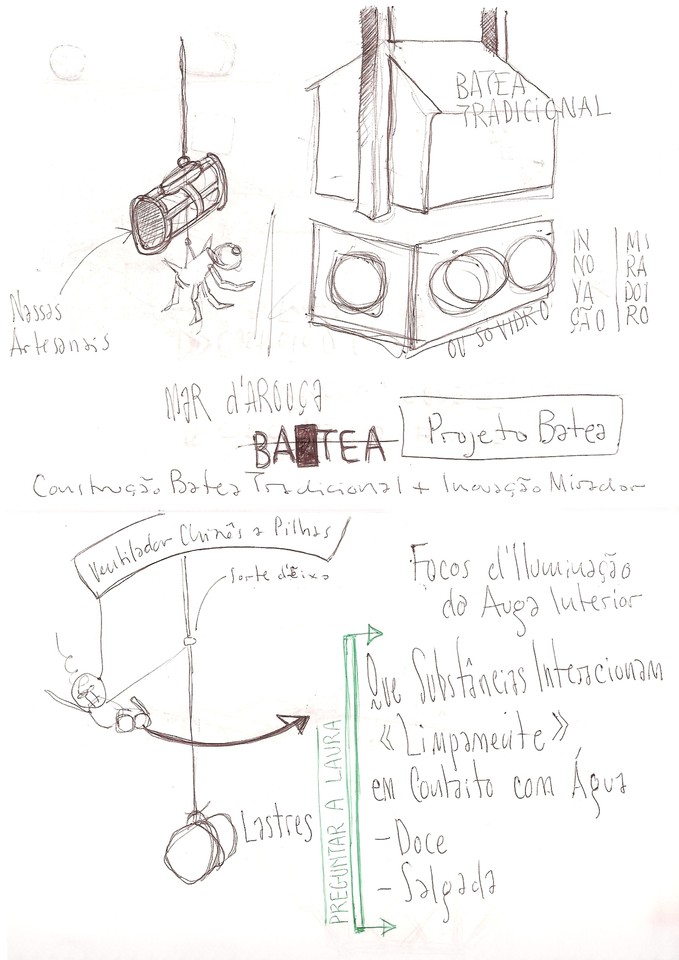 BATEA
TRADICIONAL
Nassas
Artesanais
IN
NO
VA
ÇÃO
MI
RA
DOI
RO
OU SÓ VIDRO
MAR d'AROUÇA
BATEA
Projeto Batea
Construção Batea Tradicional + Inovação Mirador
Ventilador Chinês a Pilhas
Sorte d'Eixo
Focos d'Iluminação
da Auga Interior
Que Substâncias Interacionam
«Limpamente»
em Contaito com Água
-Doce
-Salgada
PREGUNTAR A LAURA
Lastres